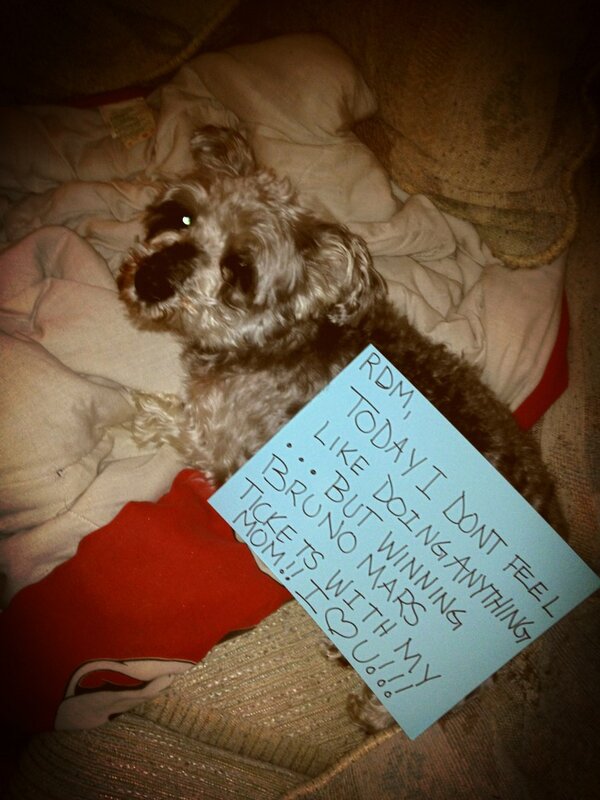 RDM,
TODAY I DONT FEEL
LIKE DOING ANYTHING
... BUT WINNING
BRUNO MARS
TICKETS WITH MY
MOM!! I ♡ U!!!